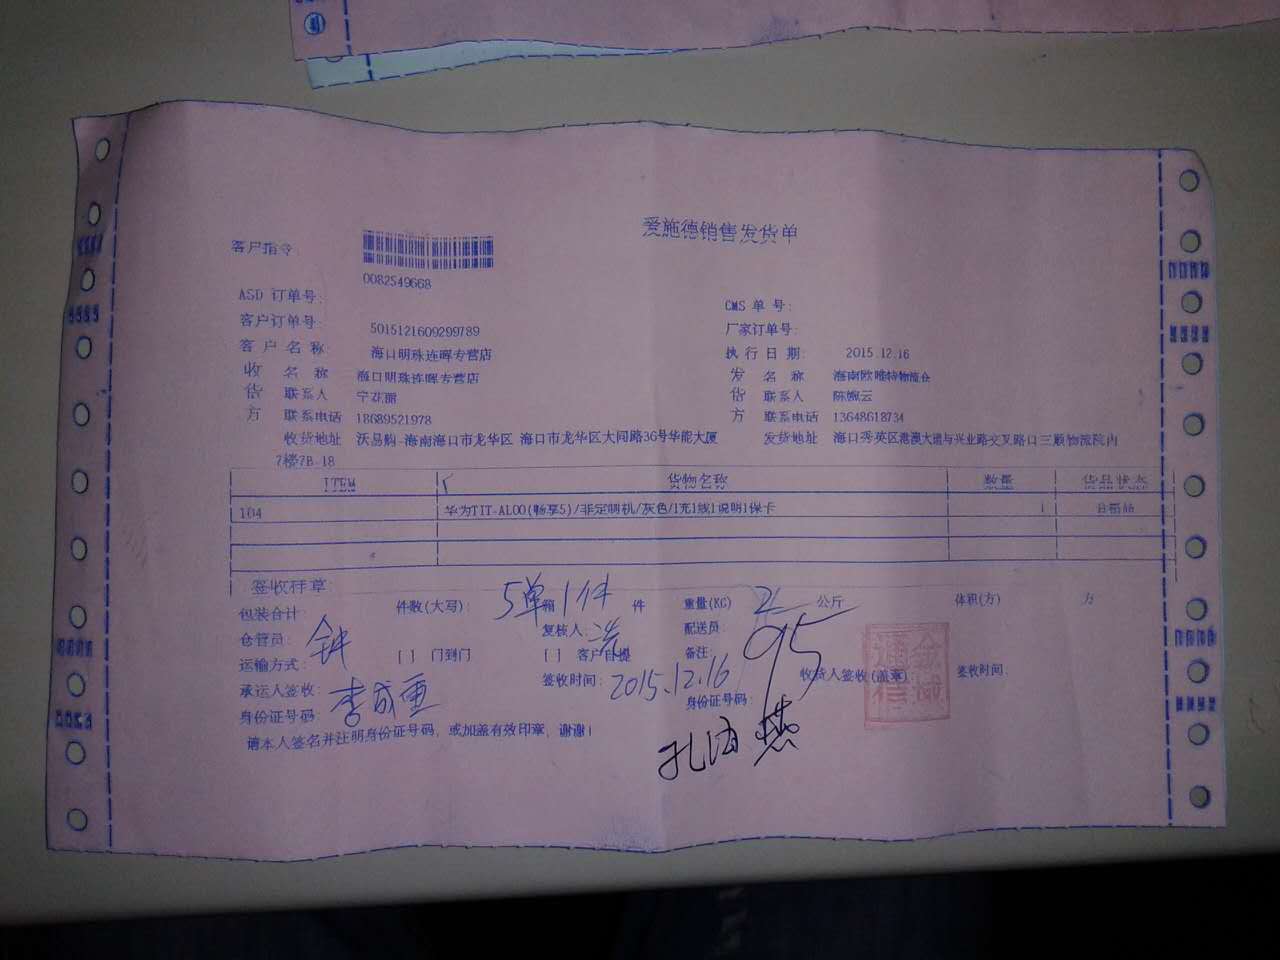 爱施德销售发货单
客户指令:
0082549668
ASD 订单号:
CMS 单 号:
客户订单号: 5015121609299789
厂家订单号:
客 户 名 称: 海口明珠连晖专营店
执 行 日 期: 2015.12.16
收 名 称 海口明珠连晖专营店
发 名 称 海南欧唯特物流仓
货 联系人
货 联系人 陈婉云
方 联系电话 18689521978
方 联系电话 13648618734
收货地址 沃易购-海南海口市龙华区 海口市龙华区大同路36号华能大厦
7楼7B-18
发货地址 海口秀英区港澳大道与兴业路交叉路口三顺物流院内
ITEM 货物名称 数量 货品状态
104 华为TIT-AL00(畅享5)/非定制机/灰色/1充1线1说明1保卡 1
签收样章:
包装合计: 件数(大写): 5单 箱 1件 件 重量(KG) 2 公斤 体积(方) 方
仓管员: 钟 复核人: 配送员:
运输方式: [ ] 门到门 [ ] 客户自提 备注: 95
承运人签收: 李成重 签收时间: 2015.12.16 收货人签收(盖章) 签收时间:
身份证号码: 身份证号码:
请本人签名并注明身份证号码, 或加盖有效印章, 谢谢!
孔海燕